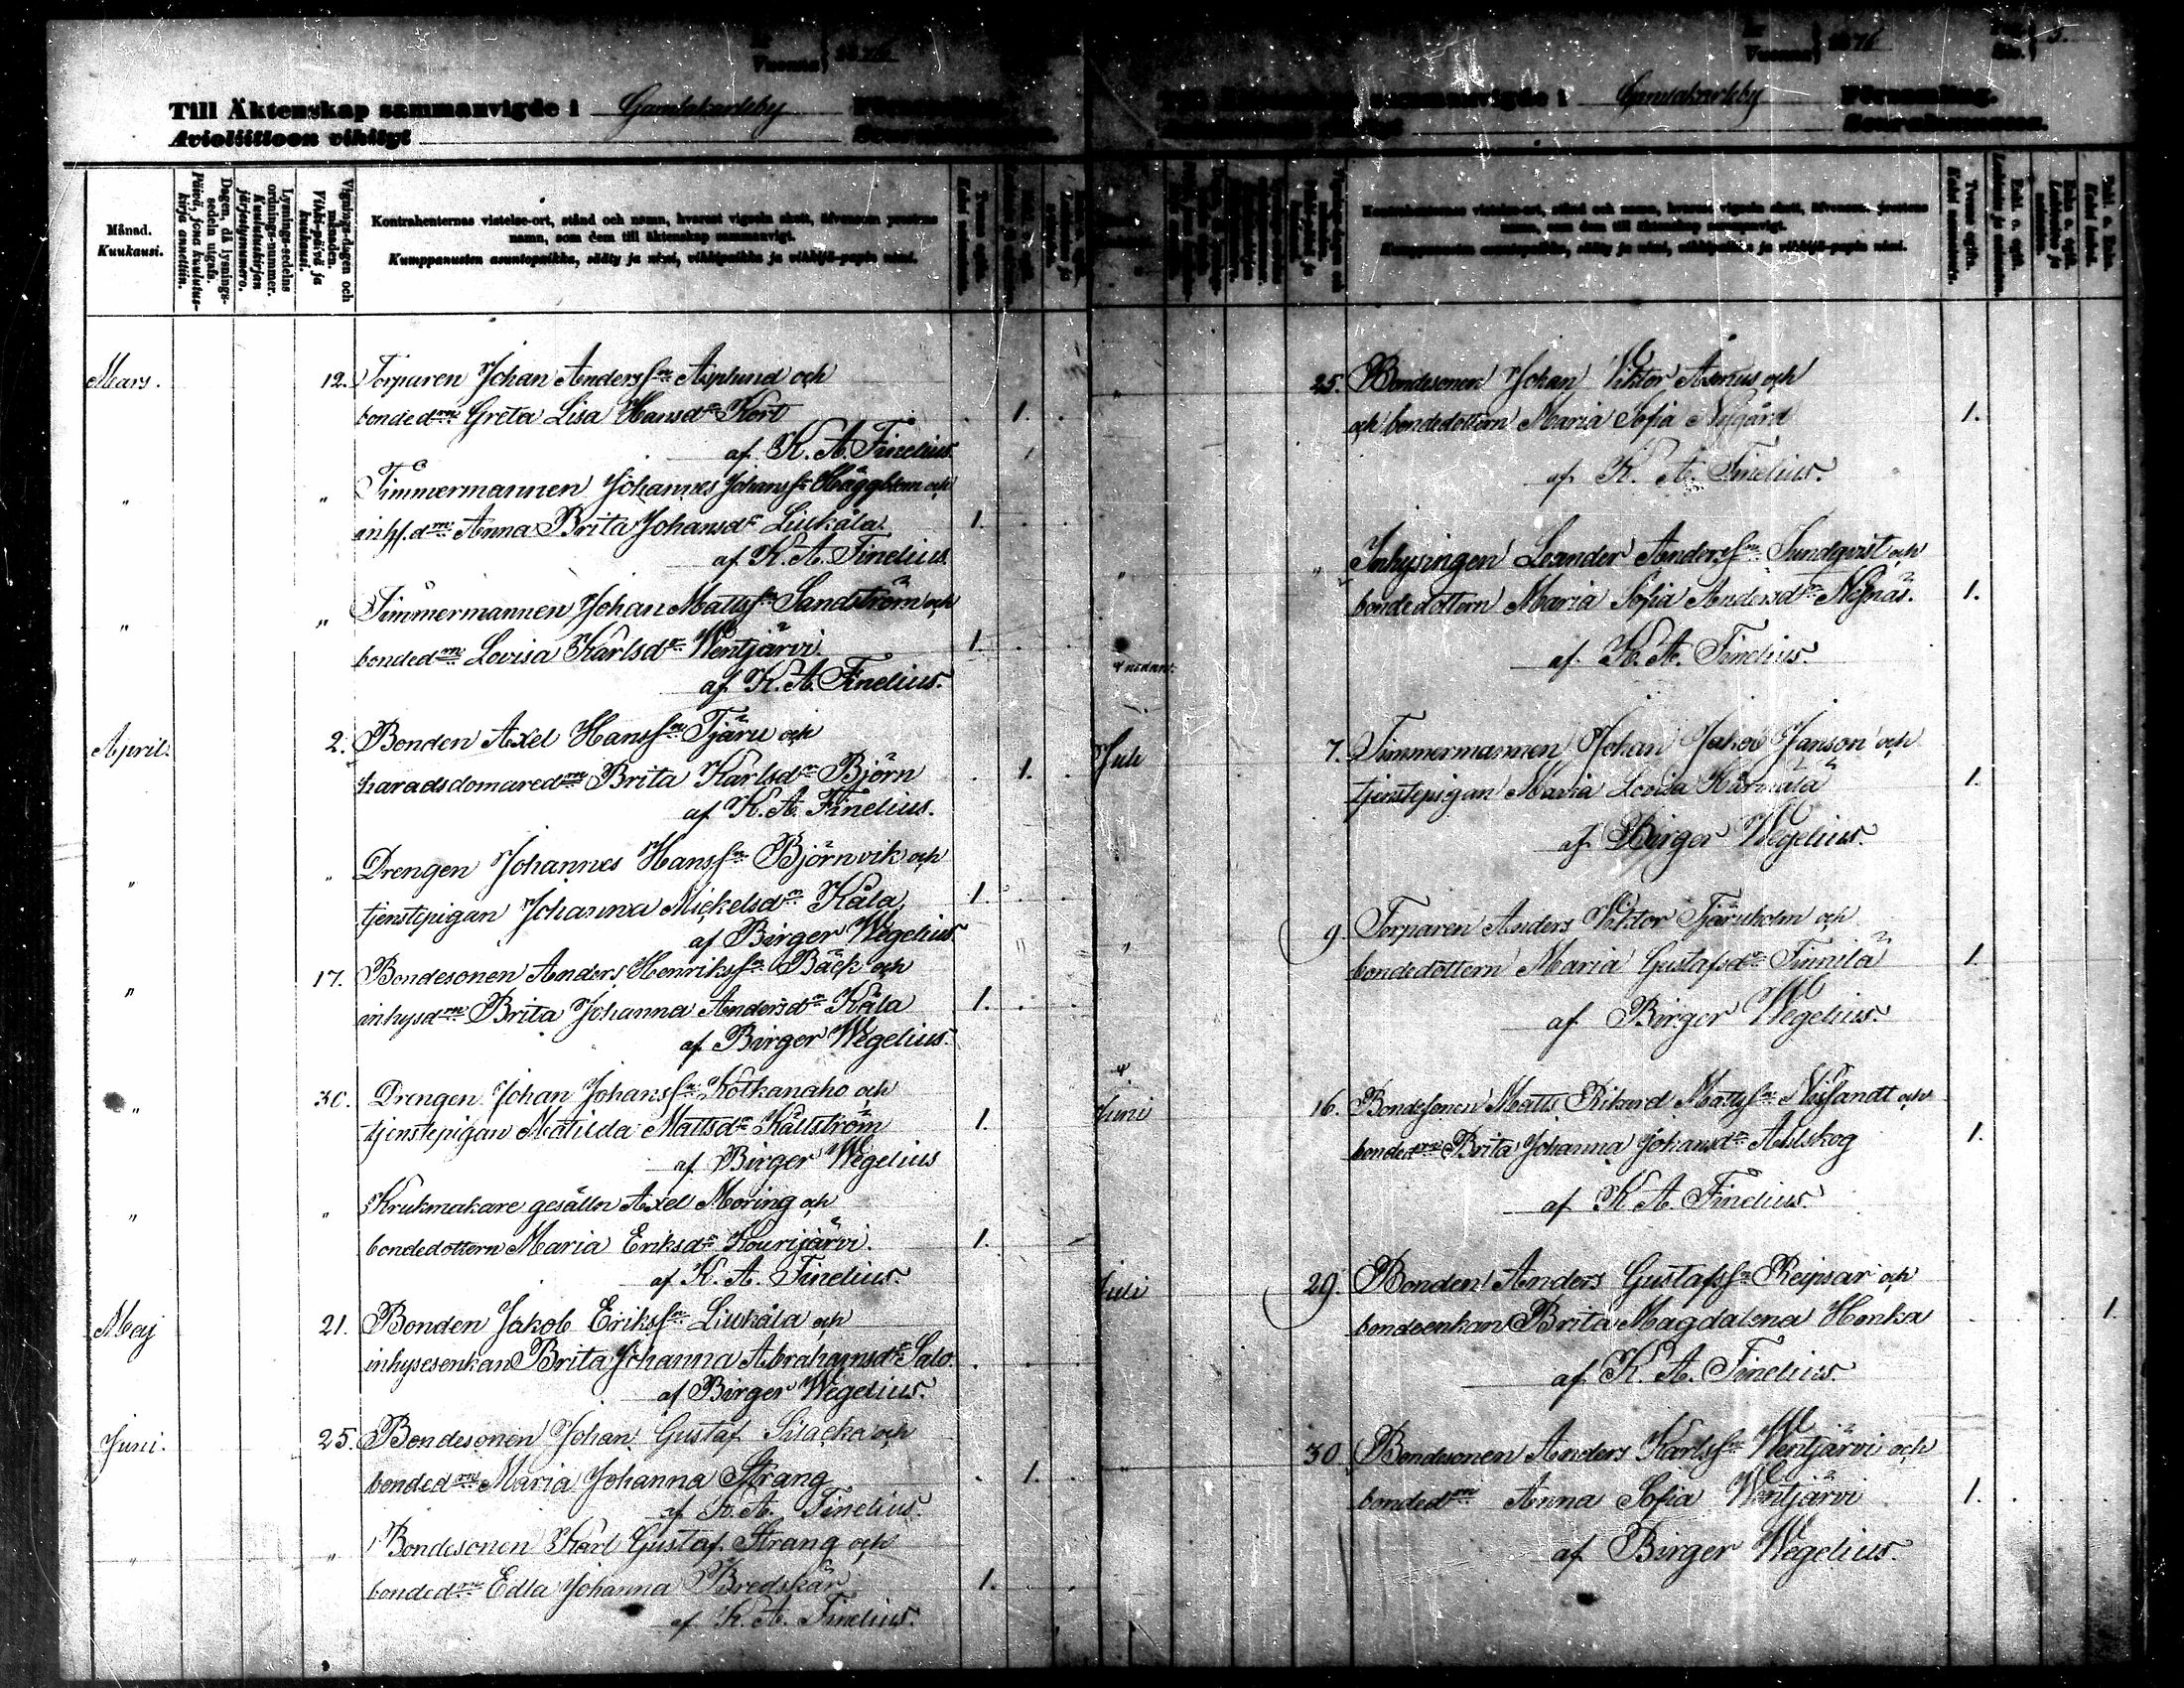 Vuonna
Till Äktenskap sammanvigde i Gamlakarleby
Avioliittoon vihityt
Månad.
Kuukausi.
Dagen, då lysnings-
sedeln utgafs.
Päivä, jona kuulutus-
kirja annettiin.
Lysnings-sedelns
ordnings-nummer.
Kuulutuskirjan
järjestysnumero.
Vignings-dagen och
månaden.
Vihki-päivä ja
kuukausi.
Kontrahenternas vistelse-ort, stånd och namn, hvarest vigseln skett, äfvensom prestens
namn, som dem till äktenskap sammanvigt.
Kumppanusten asuntopaikka, sääty ja nimi, vihkipaikka ja vihkijä-papin nimi.
Mars. 12. Torparen Johan Anderss:n Asplund och
bonded:rn Greta Lisa Hansd:r Kort 1.
af K. A. Finelius.
" " Timmermannen Johannes Johanss:n Häggblom och
inhs.d:rn Anna Brita Johansd:r Liukåla. 1.
af K. A. Finelius.
" " Timmermannen Johan Matts:n Sandström och
bonded:rn Lovisa Karlsd:r Wentjärvi. 1.
af K. A. Finelius.
April. 2. Bonden Axel Hanss:n Tjäru och
häradsdomared:rn Brita Karlsd:r Björn 1.
af K. A. Finelius.
" " Drengen Johannes Hanss:n Björnvik och
tjenstepigan Johanna Mickelsd:r Kåla 1.
af Birger Wegelius.
" 17. Bondesonen Anders Henrikss:n Bäck och
inhysd:rn Brita Johanna Andersd:r Kåla 1.
af Birger Wegelius.
" 30. Drengen Johan Johanss:n Kotkanaho och
tjenstepigan Matilda Mattsd:r Källström 1.
af Birger Wegelius
" " Krukmakare gesällen Axel Moring och
bondedottern Maria Eriksd:r Kourijärvi. 1.
af K. A. Finelius.
Maj 21. Bonden Jakob Erikss:n Liukåla och
inhysesenkan Brita Johanna Abrahamsd:r Salo.
af Birger Wegelius.
Juni. 25. Bondesonen Johan Gustaf Sisacka och
bonded:rn Maria Johanna Strang 1.
af K. A. Finelius.
" " Bondesonen Karl Gustaf Strang och
bonded:rn Edla Johanna Bredskär 1.
af K. A. Finelius.
Vuonna 1876 5.
sammanvigde i Gamlakarleby Församling.
Seurakunnassa.
Kontrahenternas vistelse-ort, stånd och namn, hvarest vigseln skett, äfvensom prestens
namn, som dem till äktenskap sammanvigt.
Kumppanusten asuntopaikka, sääty ja nimi, vihkipaikka ja vihkijä-papin nimi.
" 25. Bondesonen Johan Viktor Asmus och
och bondedottern Maria Sofia Nygård 1.
af K. A. Finelius.
" " Inhysingen Leander Anderss:n Sundqvist och
bondedottern Maria Sofia Andersd:r Nygnäs. 1.
af K. A. Finelius.
Juli 7. Timmermannen Johan Jakob Janson och
tjenstepigan Maria Lovisa Härmälä 1.
af Birger Wegelius.
" 9. Torparen Anders Viktor Tjäruholm och
bondedottern Maria Gustafsd:r Finnilä 1.
af Birger Wegelius.
Juni 16. Bondesonen Matts Rikard Mattss:n och
bonded:rn Brita Johanna Johansd:r Ahlskog 1.
af K. A. Finelius.
Juli 29. Bonden Anders Gustafss:n Reipsar och
bondeenkan Brita Magdalena Honka 1.
af K. A. Finelius.
" 30 Bondesonen Anders Karlss:n Wentjärvi och
bonded:rn Anna Sofia Wentjärvi 1.
af Birger Wegelius.